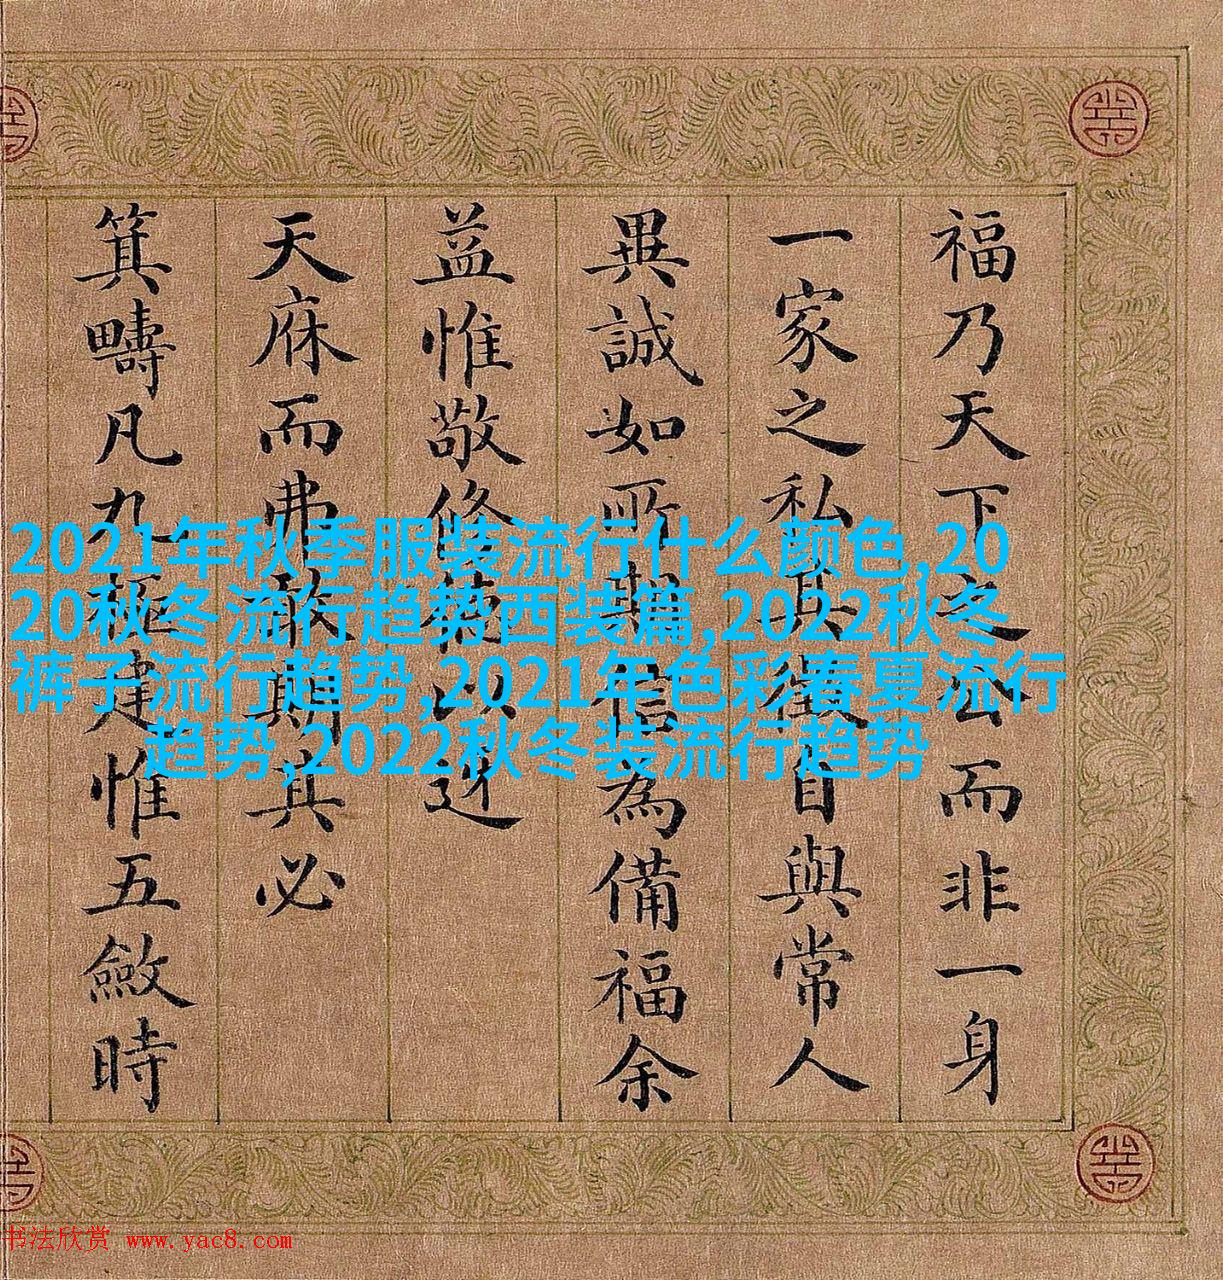 福乃天下之公而非一身
一家之私其徵自與常人
異誠如所期信為備福余
益惟敬修以迓
天庥而弗敢期其必
箕疇凡九極建惟五斂時
2021年秋季服装流行什么颜色,20
20秋冬流行趋势西装篇,2022秋冬
裤子流行趋势,2021年色彩春夏流行
趋势,2022秋冬装流行趋势
书法欣赏 www.yac8.com